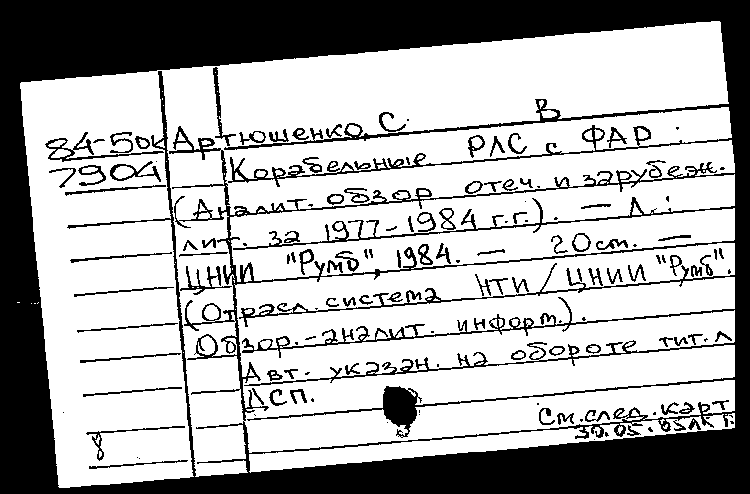 84-5ок Артюшенко, С В
7904 Корабельные РЛС с ФАР :
(Аналит. обзор отеч. и зарубеж.
лит. за 1977-1984 г.г.). — Л.:
ЦНИИ "Румб", 1984. — 20 см. —
(Отрасл. система НТИ / ЦНИИ "Румб".
Обзор.-аналит. информ.).
Авт. указан. на обороте тит. л
ДСП.
См. след. карт
30.05.85
8